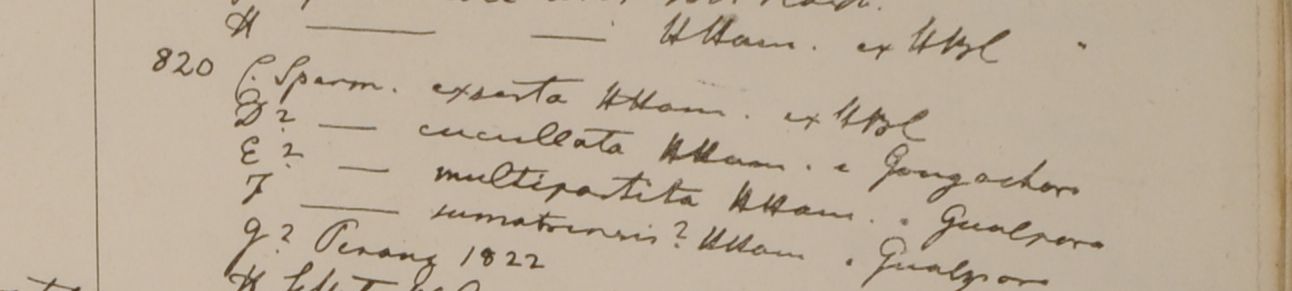 H — — HHam. ex HBC "
820 C. Sperm. exserta HHam. ex HBC
D? — cucullata HHam. e Gongachora
E? — multipartita HHam. " Gualpara
F — sumatrensis? HHam " Gualpara
G? Penang 1822
H